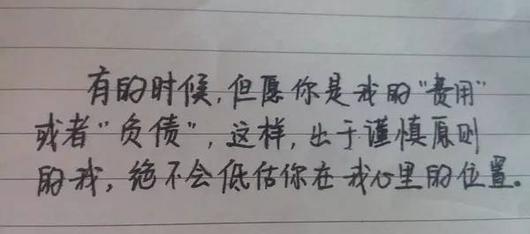 有的时候,但愿你是我的“费用”
或者“负债”,这样,出于谨慎原则
的我,绝不会低估你在我心里的位置。